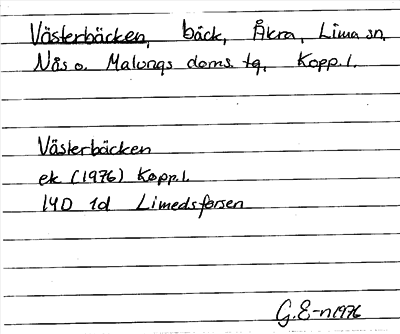 Västerbäcken, bäck, Åkra, Lima sn,
Nås o. Malungs doms. tg, Kopp. l.
Västerbäcken
ek (1976) Kopp. l.
14D 1d Limedsforsen
G.E-n 1976